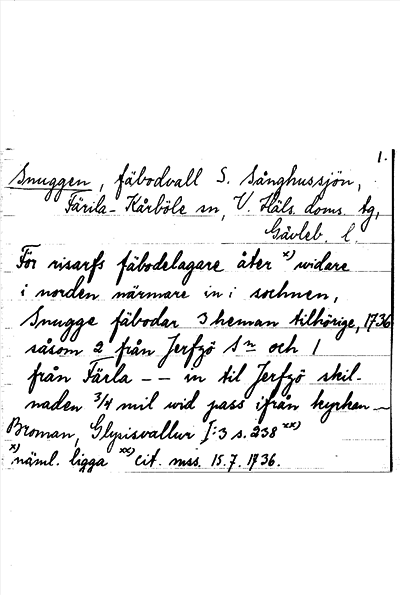 1.
Snuggen, fäbodvall S. Sånghussjön,
Färila-Kårböle sn, V. Häls. doms. tg,
Gävleb. l.
För risarfs fäbodelagare åter x) widare
i norden närmare in i sochnen,
Snugge fäbodar 3 heman tilhörige, 1736
såsom 2 från Jerfzö Sn och 1
från Färla -- in til Jerfzö skil-
naden 3/4 mil wid pass ifrån kyrkan —
Broman, Glysisvallur I:3 s. 238 xx)
x) näml. ligga xx) cit. mss. 15.7.1736.